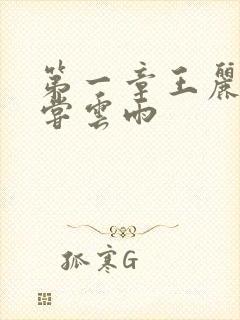 第一章王麗
嘗雲雨
孤寒G